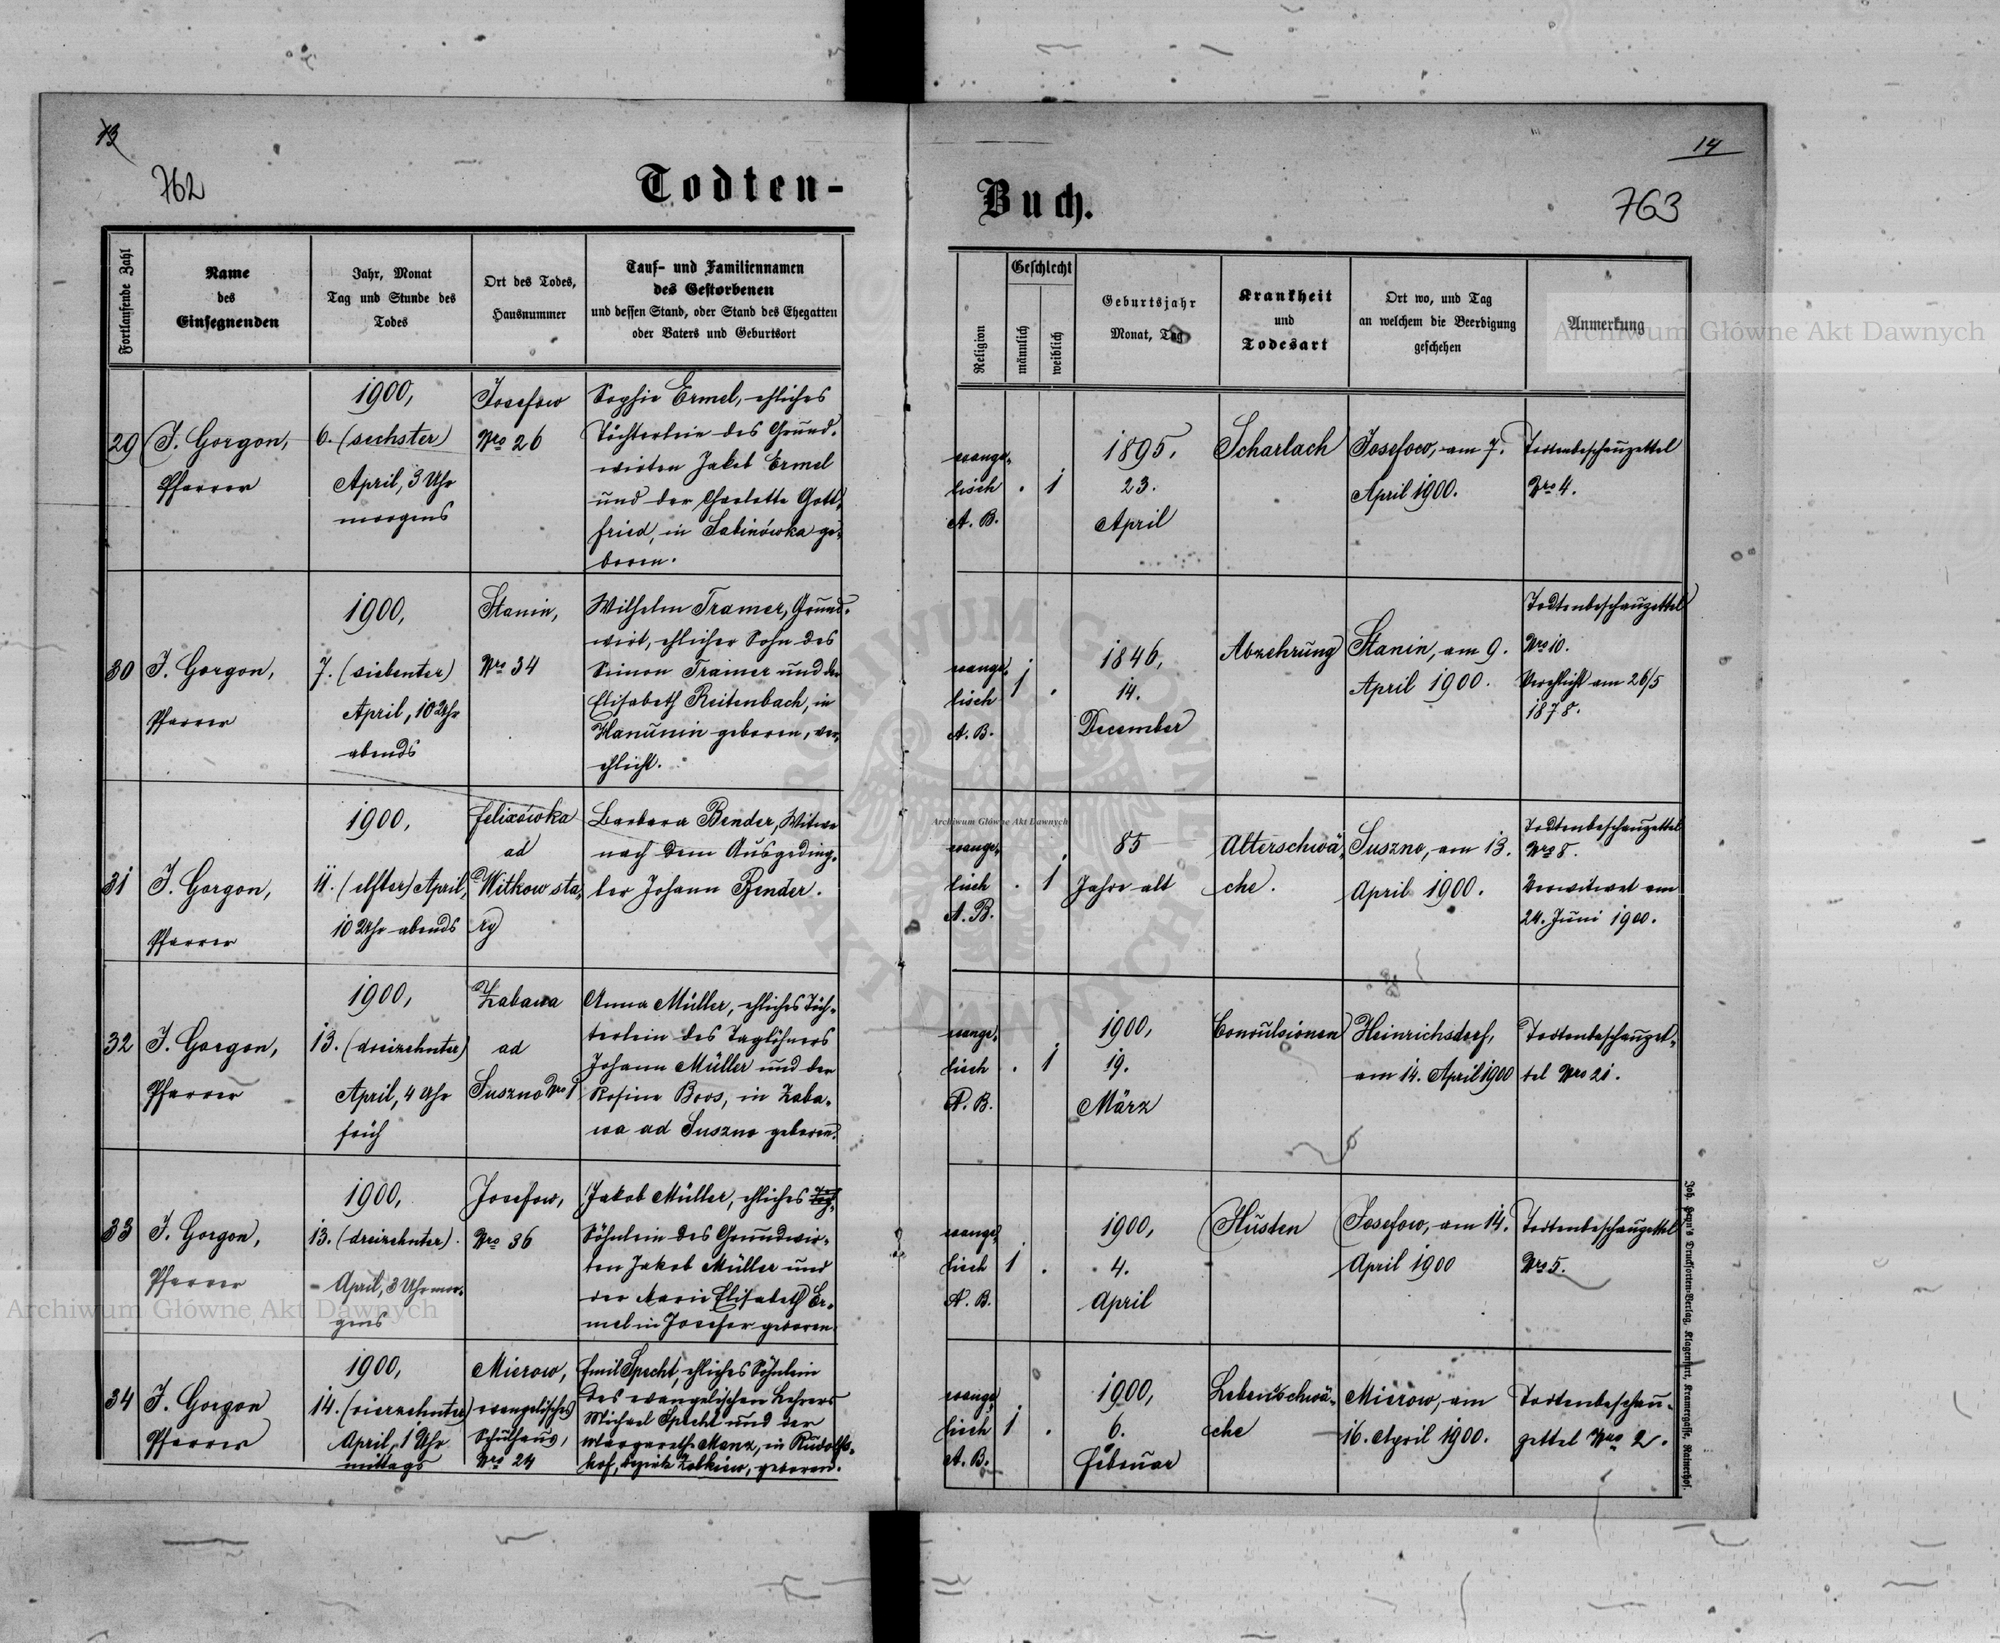 13
762
Todten-
Fortlaufende Zahl
Name
des
Einsegnenden
Jahr, Monat
Tag und Stunde des
Todes
Ort des Todes,
Hausnummer
Tauf- und Familiennamen
des Gestorbenen
und dessen Stand, oder Stand des Ehegatten
oder Vaters und Geburtsort
29
J. Gorgon,
Pfarrer
1900,
6. (sechster)
April, 3 Uhr
morgens
Josefow
Nro 26
Sophie Ermel, ehliches
Töchterlein des Grund-
wirten Jakob Ermel
und der Charlotte Gott-
fried, in Sabinówka ge-
boren.
30
J. Gorgon,
Pfarrer
1900,
7. (siebenter)
April, 10 Uhr
abends
Stanin,
Nro 34
Wilhelm Tramer, Grund-
wirt, ehlicher Sohn des
Simon Tramer und der
Elisabeth Reitenbach, in
Hanunin geboren, ver-
ehlicht.
31
J. Gorgon,
Pfarrer
1900,
11. (elfter) April,
10 Uhr abends
Felixówka
ad
Witkow sta-
ry
Barbara Bender, Witwe
nach dem Ausgeding-
ler Johann Bender.
32
J. Gorgon,
Pfarrer
1900,
13. (dreizehnter)
April, 4 Uhr
früh
Zabawa
ad
Suszno Nro 1
Anna Müller, ehliches Töch-
terlein des Taglöhners
Johann Müller und der
Rosina Boos, in Zaba-
wa ad Suszno geboren.
33
J. Gorgon,
Pfarrer
1900,
13. (dreizehnter).
April, 3 Uhr mor-
gens
Josefow,
Nro 36
Jakob Müller, ehliches
Söhnlein des Grundwir-
ten Jakob Müller und
der Marie Elisabeth Er-
mel in Josefow geboren.
34
J. Gorgon
Pfarrer
1900,
14. (vierzehnter)
April, 1 Uhr
mittags
Mierow,
evangelisches
Schulhaus,
Nro 24
Emil Specht, ehliches Söhnlein
des evangelischen Lehrers
Michael Specht und der
Margareth Manz, in Rudolfs-
hof, Bezirk Zolkiew, geboren.
14
763
Buch.
Religion
Geschlecht
männlich
weiblich
Geburtsjahr
Monat, Tag
Krankheit
und
Todesart
Ort wo, und Tag
an welchem die Beerdigung
geschehen
Anmerkung
evange-
lisch
A. B.
. 1
1895,
23.
April
Scharlach
Josefow, am 7.
April 1900.
Todtenbeschauzettel
Nro 4.
evange-
lisch
A. B.
1 .
1846,
14.
December
Abzehrung
Stanin, am 9.
April 1900.
Todtenbeschauzettel
Nro 10.
Verehlicht am 26/5
1878.
evange-
lisch
A. B.
. 1
85
Jahre alt
Altersschwä-
che.
Suszno, am 13.
April 1900.
Todtenbeschauzettel
Nro 8.
Verwitwet am
24. Juni 1900.
evange-
lisch
A. B.
. 1
1900,
19.
März
Convulsionen
Heinrichsdorf,
am 14. April 1900
Todtenbeschauzet-
tel Nro 21.
evange-
lisch
A. B.
1 .
1900,
4.
April
Husten
Josefow, am 14.
April 1900
Todtenbeschauzettel
Nro 5.
evange-
lisch
A. B.
1 .
1900,
6.
Februar
Lebensschwä-
che
Mierow, am
16. April 1900.
Todtenbeschau-
zettel Nro 2.
Joh. Heyn's Drucksorten-Verlag, Klagenfurt, Kramergasse, Rainerhof.
Archiwum Główne Akt Dawnych
Archiwum Główne Akt Dawnych
Archiwum Główne Akt Dawnych
ARCHIWUM GŁÓWNE
AKT DAWNYCH